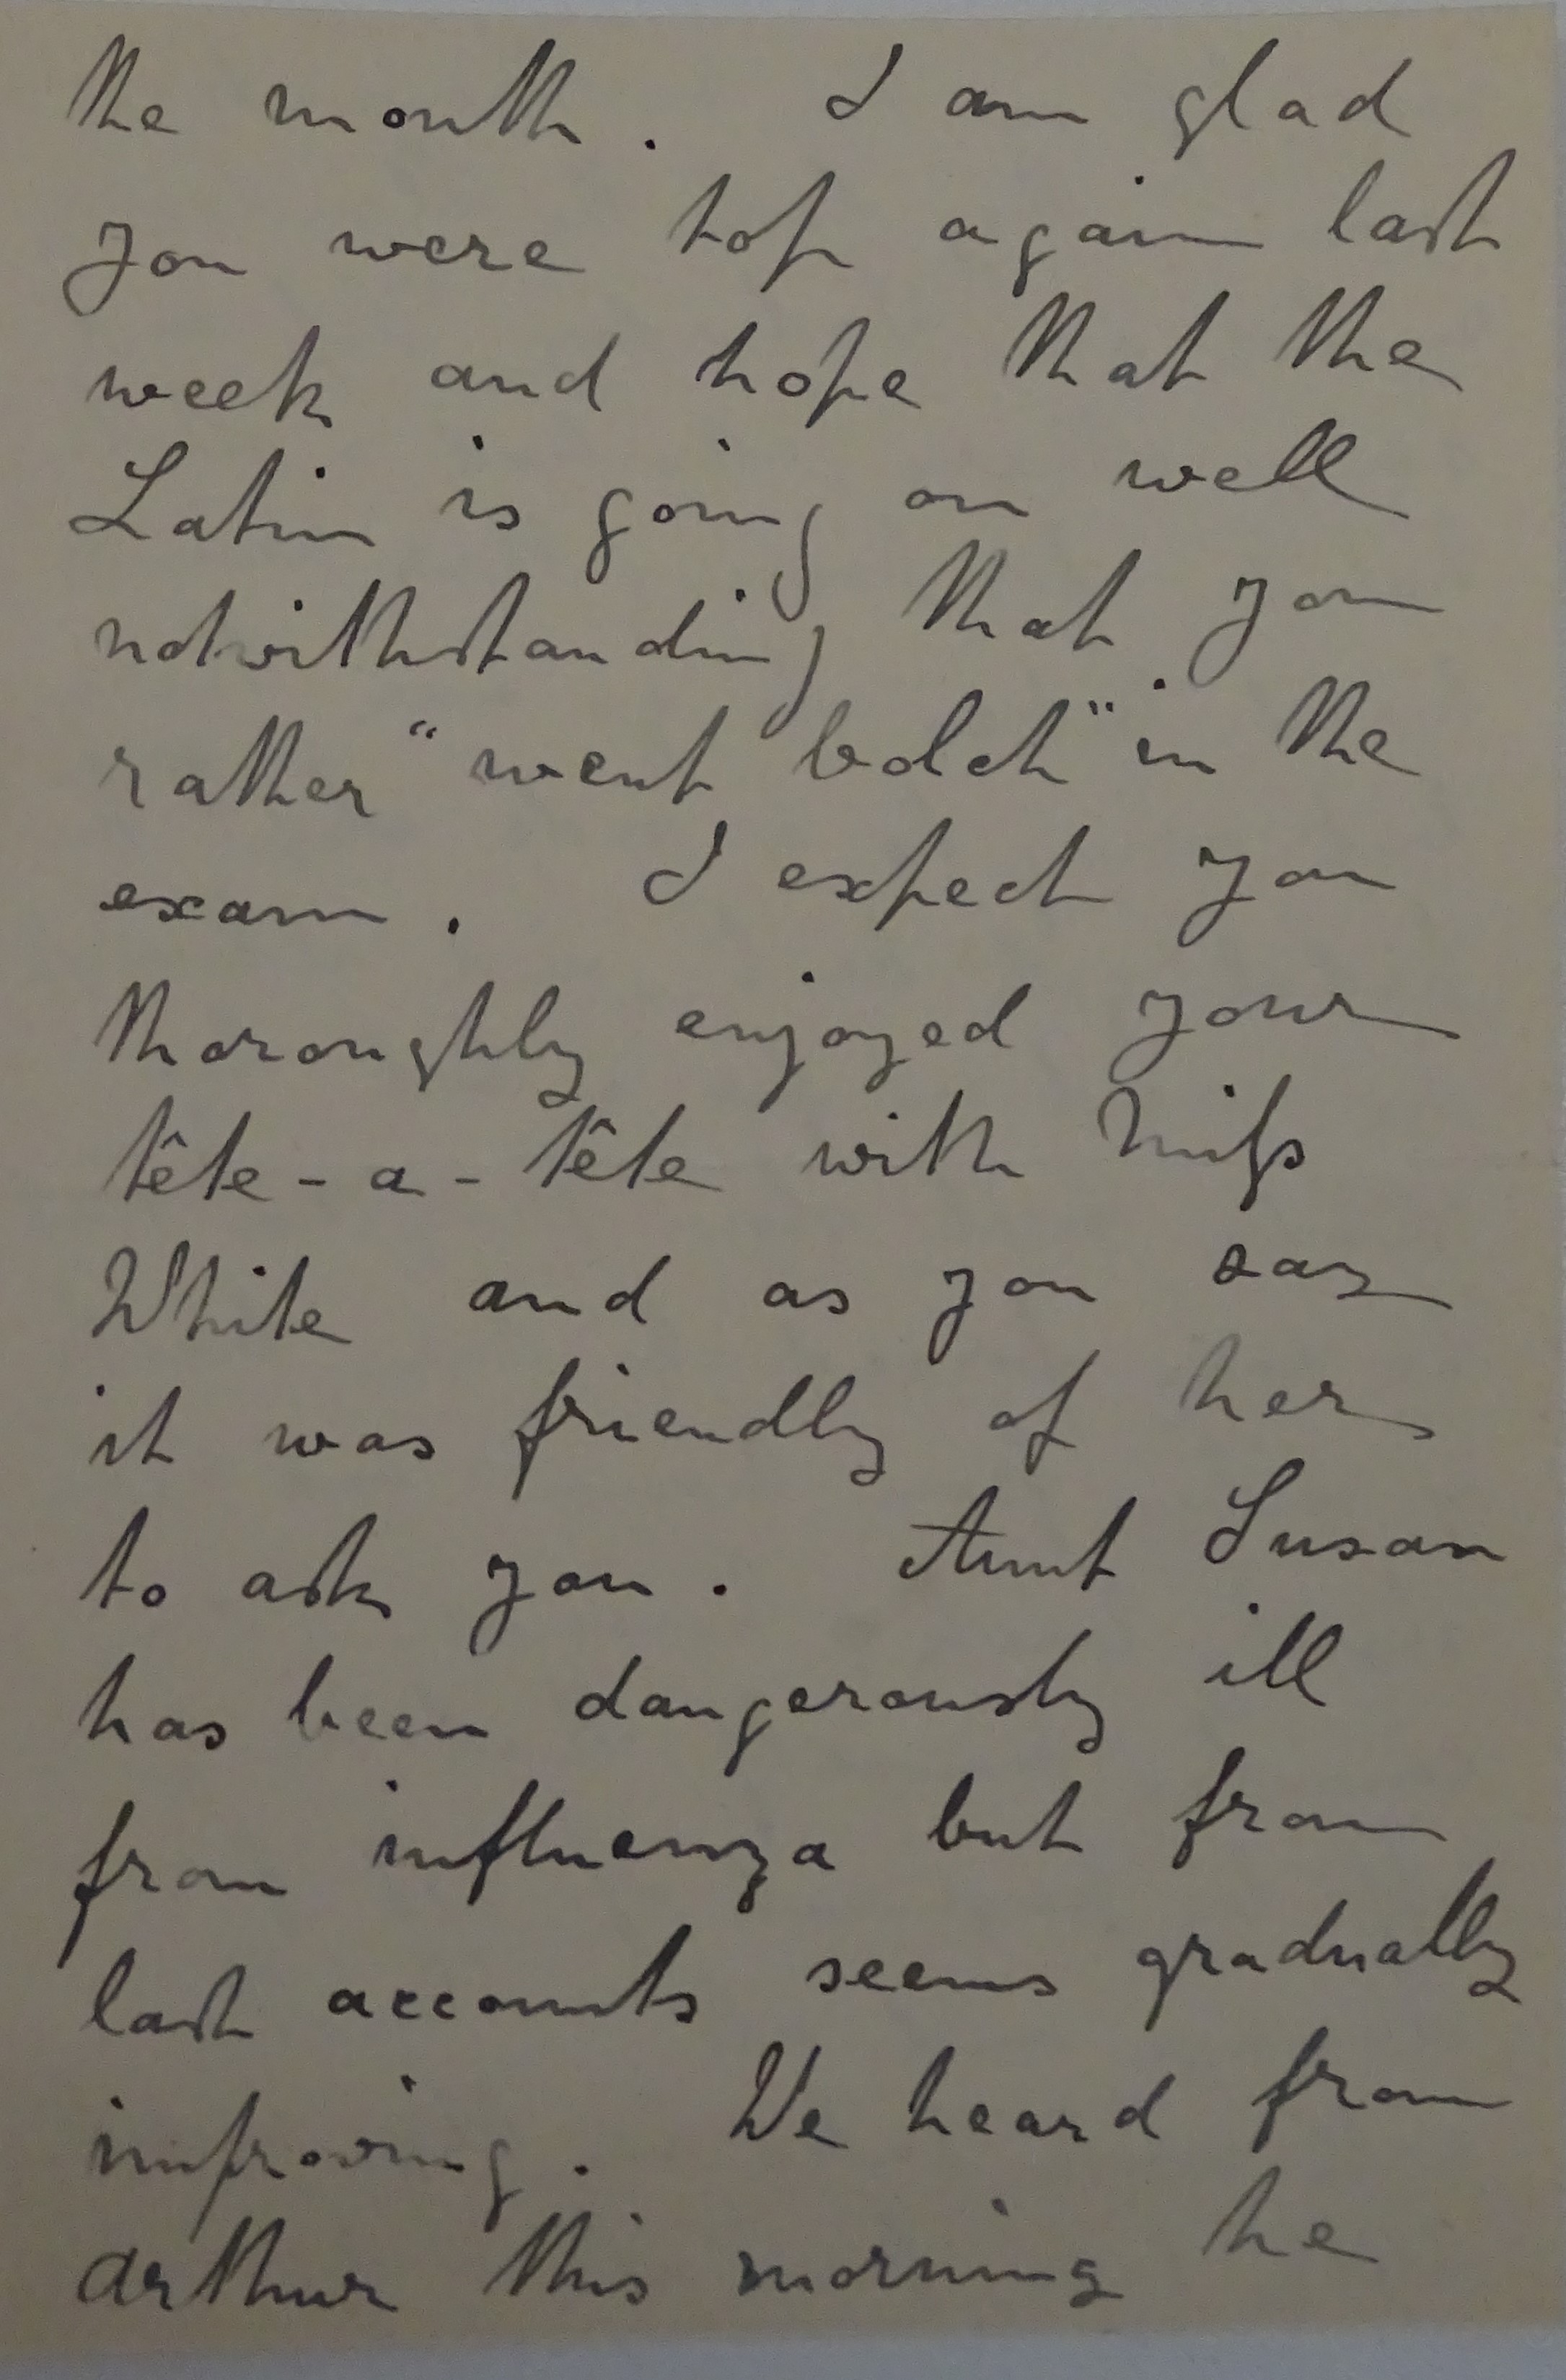 the month. I am glad
you were top again last
week and hope that the
Latin is going on well
notwithstanding that you
rather "went bolch" in the
exam. I expect you
thoroughly enjoyed your
tête-a-tête with Miss
White and as you say
it was friendly of her
to ask you. Aunt Susan
has been dangerously ill
from influenza but from
last accounts seems gradually
improving. We heard from
Arthur this morning he